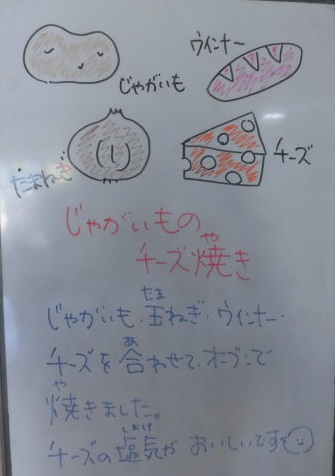 じゃがいも
ウインナー
たまねぎ
チーズ
じゃがいもの
チーズ焼き
や
じゃがいも・玉ねぎ・ウインナー・
たま
チーズを合わせて、オーブンで
あ
焼きました。
や
チーズの塩気が おいしいです
しおけ